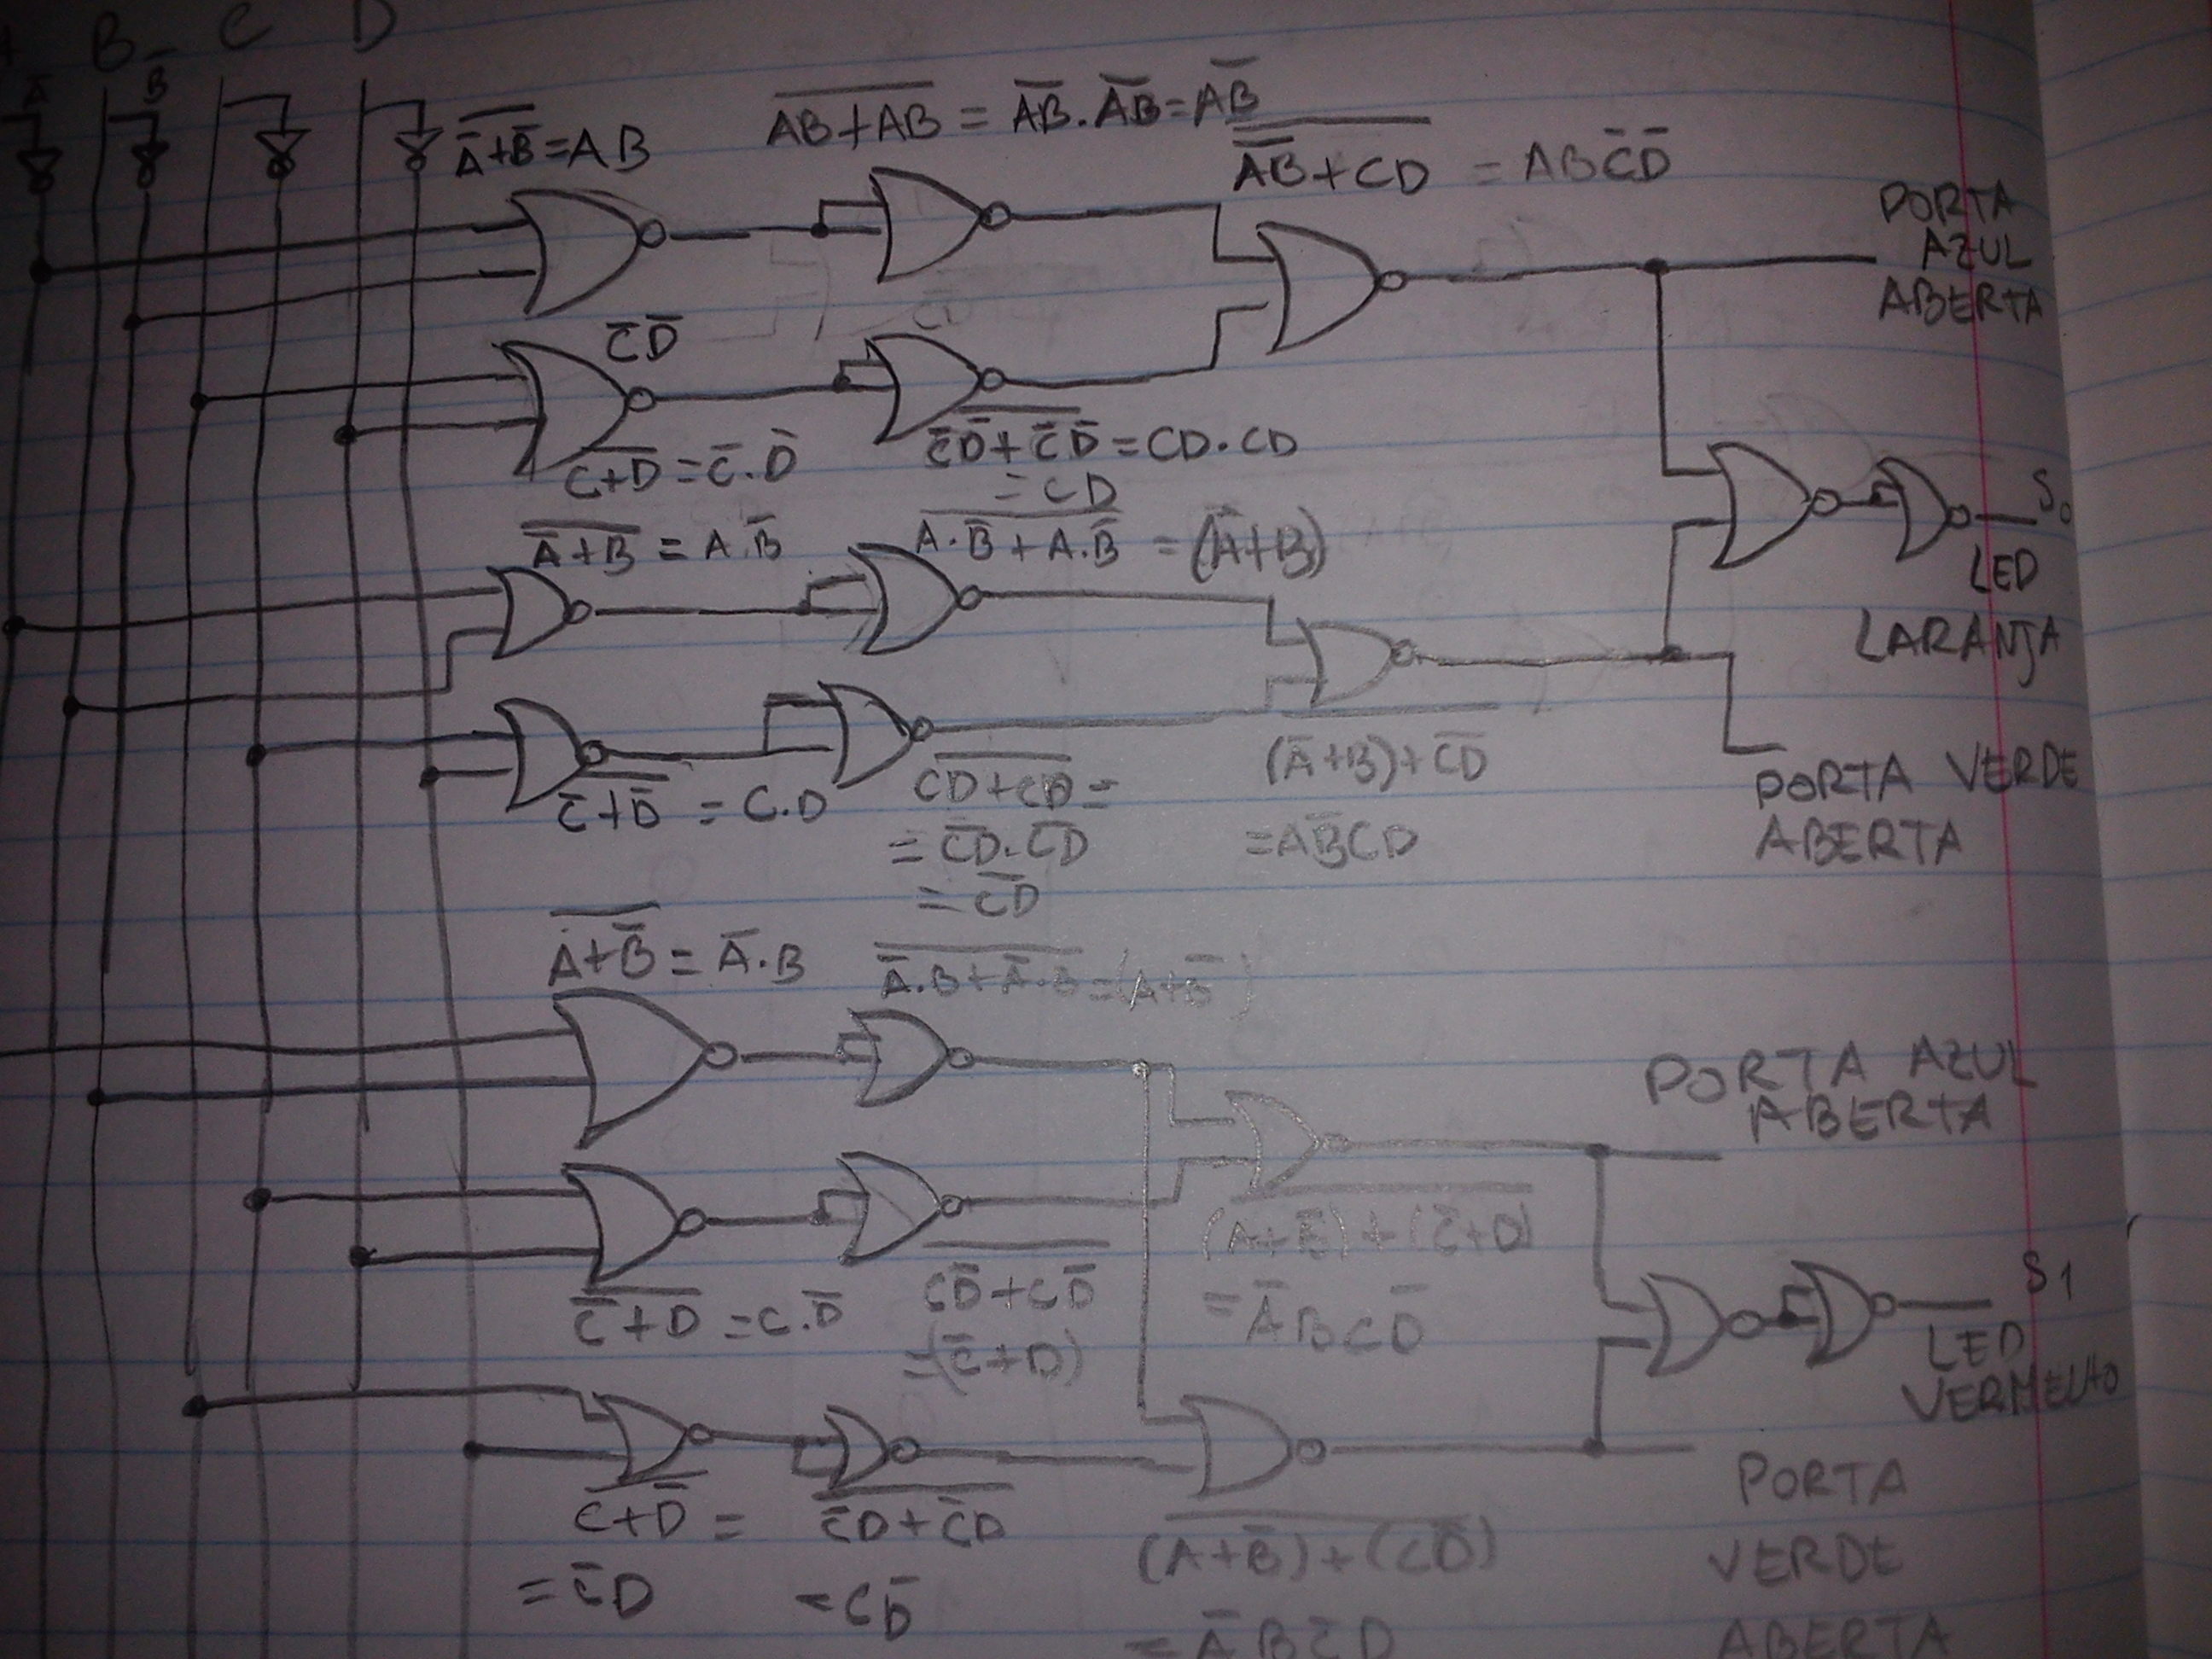 B C D
Ā B̄
\overline{Ā+B̄}=AB
\overline{AB+AB} = \overline{AB}.\overline{AB}=\overline{AB}
\overline{\overline{AB}+CD} = ABC̄D̄
PORTA
AZUL
ABERTA
C̄D̄
\overline{C+D}=C̄.D̄
\overline{C̄D̄+C̄D̄}=CD.CD
=CD
S₀
LED
LARANJA
\overline{Ā+B} = A.B̄
\overline{A.B̄+A.B̄} =(Ā+B)
\overline{C̄+D̄} = C.D
\overline{CD+CD}=
=\overline{CD}.\overline{CD}
=\overline{CD}
\overline{(Ā+B)+\overline{CD}}
=AB̄CD
PORTA VERDE
ABERTA
\overline{A+B̄}=Ā.B
\overline{Ā.B+Ā.B}=(A+B̄)
PORTA AZUL
ABERTA
\overline{C̄+D}=C.D̄
\overline{CD̄+CD̄}
=(C̄+D)
\overline{(A+B̄)+(C̄+D)}
=ĀBCD̄
S1
LED
VERMELHO
\overline{C+D̄}=
=C̄D
\overline{C̄D+C̄D}
=CD̄
\overline{(A+B̄)+(CD̄)}
=ĀBC̄D
PORTA
VERDE
ABERTA